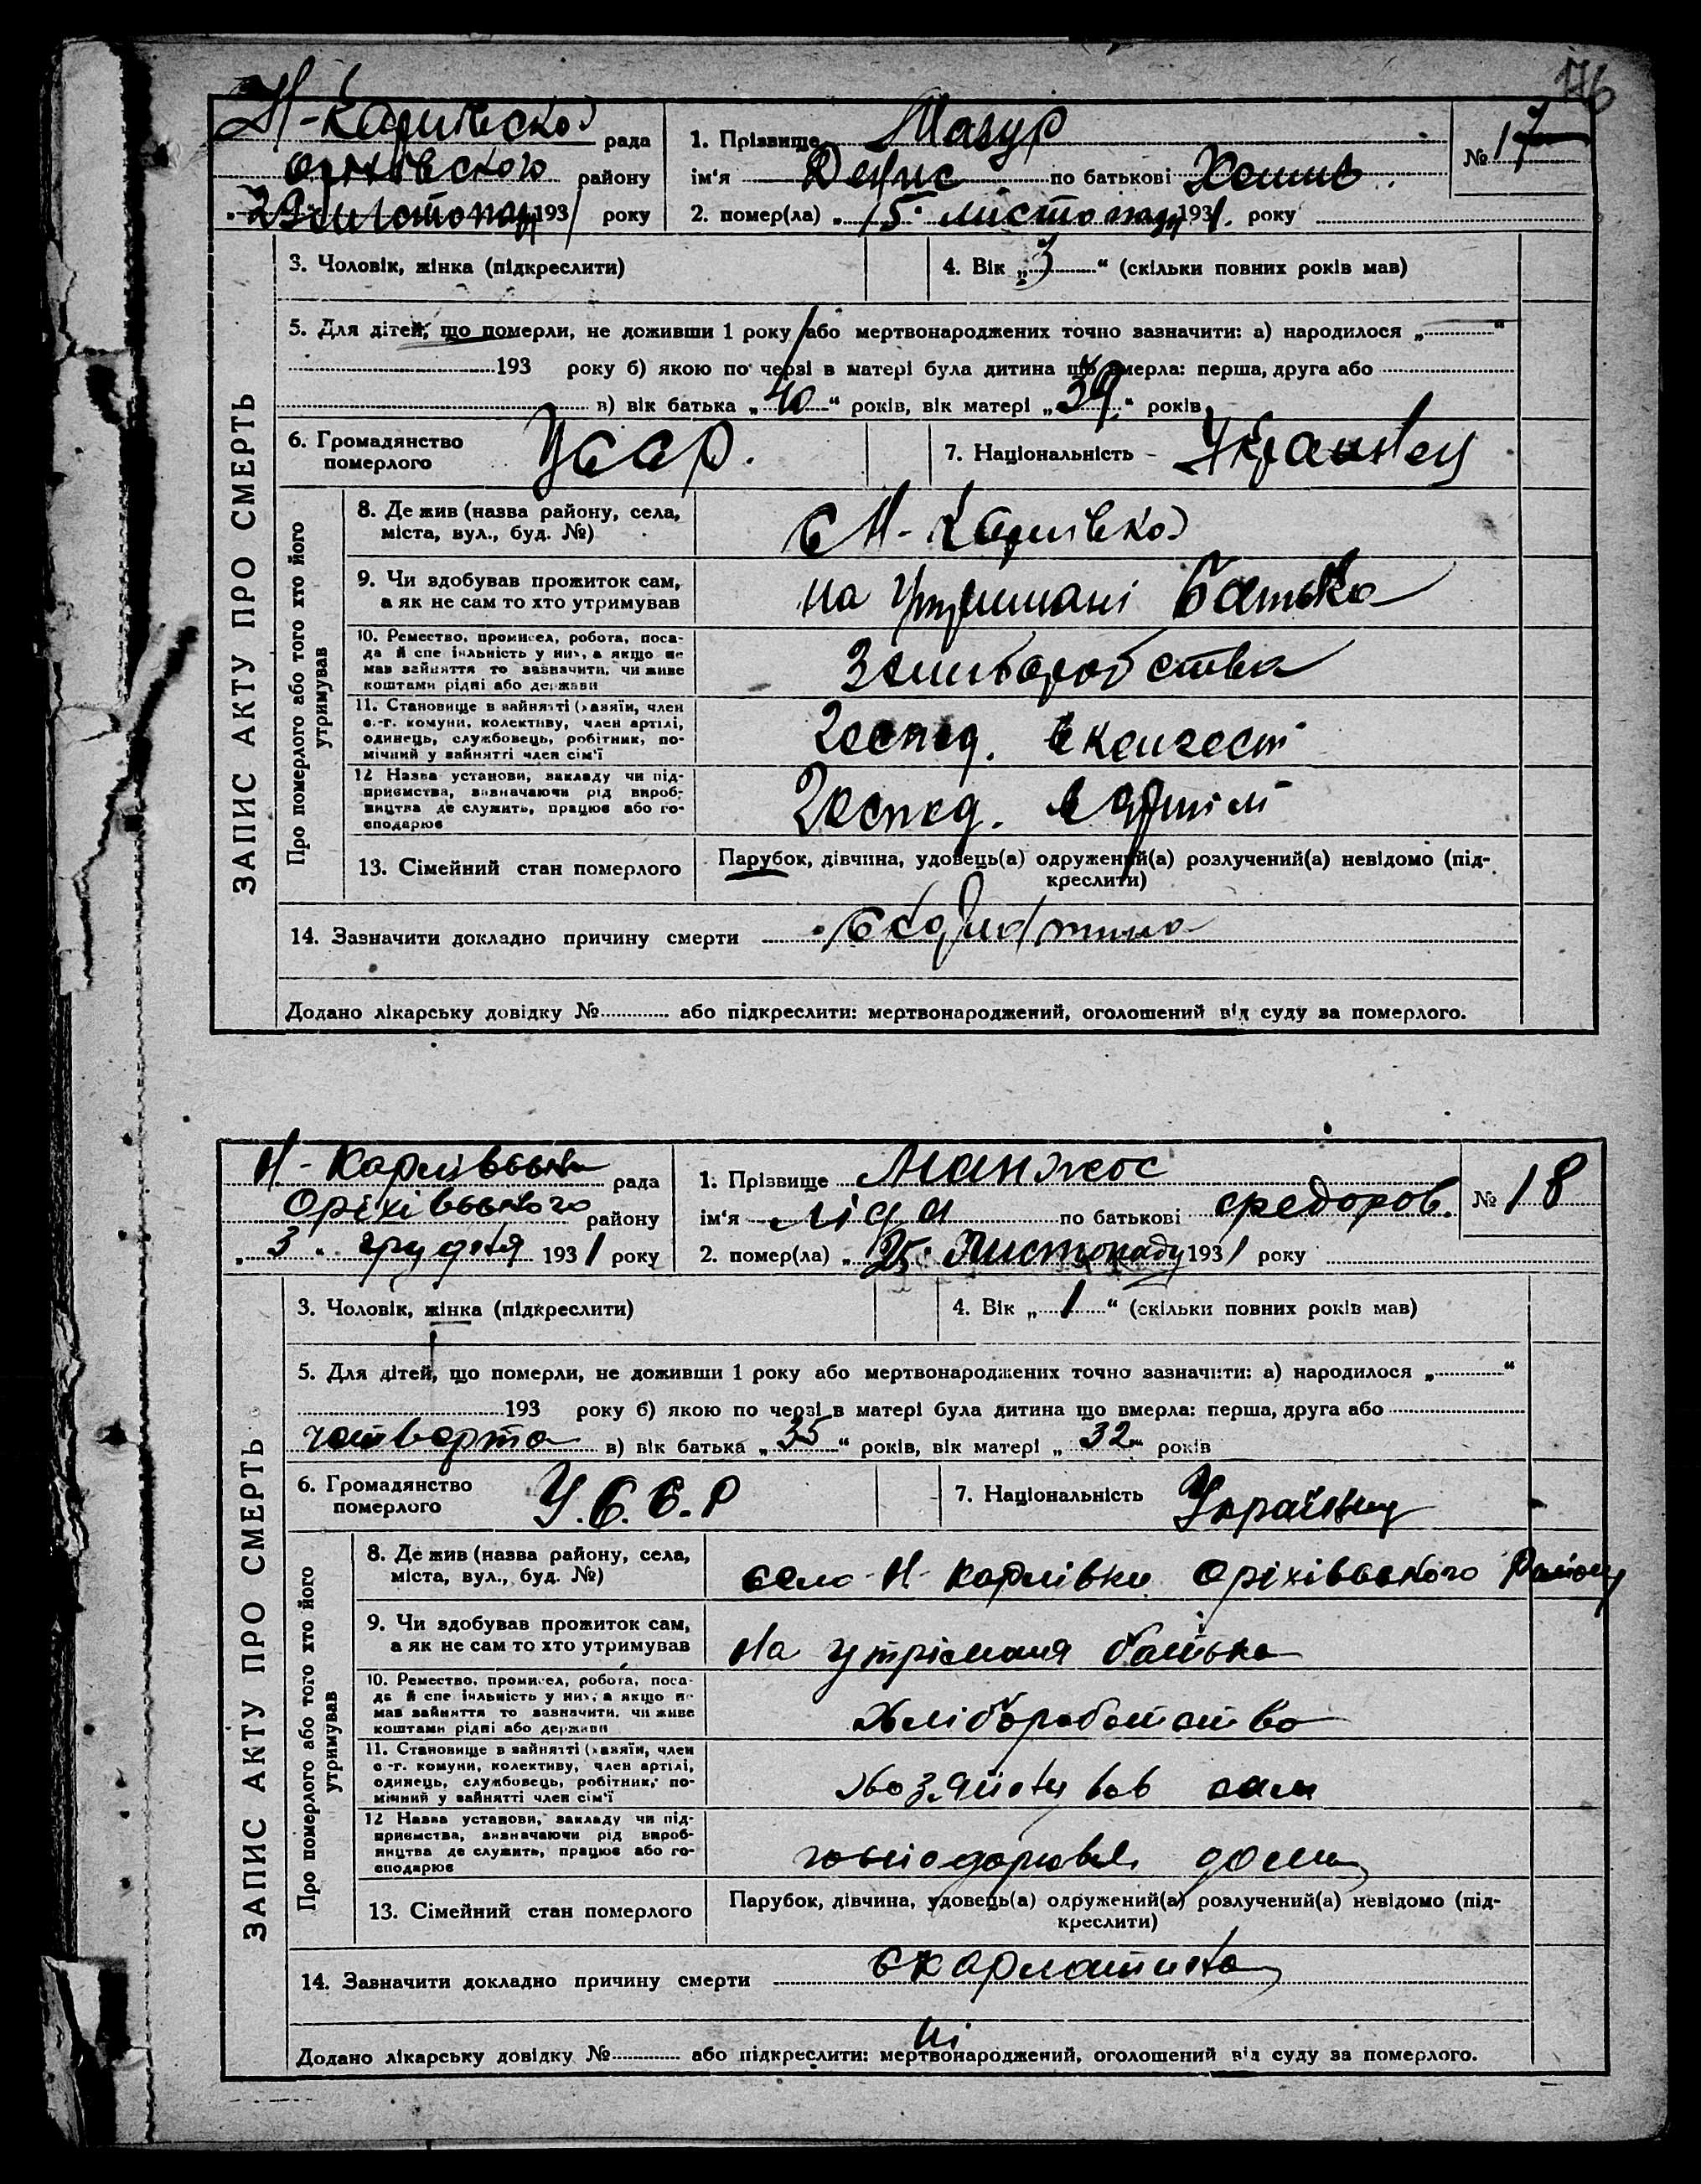 176
Н-Карлівсько рада
оріхівського району
„29“ листопад 1931 року
1. Прізвище Мазур
ім'я Денис по батькові
2. помер(ла) „15“ листопаду 1931. року
№ 17
ЗАПИС АКТУ ПРО СМЕРТЬ
3. Чоловік, жінка (підкреслити)
4. Вік „3“ (скільки повних років мав)
5. Для дітей, що померли, не доживши 1 року або мертвонароджених точно зазначити: а) народилося „ “
193 року б) якою по черзі в матері була дитина що вмерла: перша, друга або
в) вік батька „40“ років, вік матері „39“ років
6. Громадянство
померлого
Усср.
7. Національність - Українец
Про померлого або того хто його
утримував
8. Де жив (назва району, села,
міста, вул., буд. №)
с Н-Карлівка
9. Чи здобував прожиток сам,
а як не сам то хто утримував
на утримані батька
10. Ремество, промисел, робота, поса-
да й спеціяльність у них, а якщо не
мав зайняття то зазначити, чи живе
коштами рідні або держави
11. Становище в зайнятті (хазяїн, член
с.-г. комуни, колективу, член артілі,
одинець, службовець, робітник, по-
мічний у зайнятті член сім'ї
Господ. в
12 Назва установи, закладу чи під-
приємства, зазначаючи рід вироб-
ництва де служить, працює або го-
сподарює
Господ. в артілі
13. Сімейний стан померлого
Парубок, дівчина, удовець(а) одружений(а) розлучений(а) невідомо (під-
креслити)
14. Зазначити докладно причину смерти скарлатина
Додано лікарську довідку № або підкреслити: мертвонароджений, оголошений від суду за померлого.
Н-Карлівська рада
Оріхівського району
„3“ грудня 1931 року
1. Прізвище Манжос
ім'я Ліда по батькові Федоров.
2. помер(ла) „25“ Листопаду 1931 року
№ 18
ЗАПИС АКТУ ПРО СМЕРТЬ
3. Чоловік, жінка (підкреслити)
4. Вік „1“ (скільки повних років мав)
5. Для дітей, що померли, не доживши 1 року або мертвонароджених точно зазначити: а) народилося „ “
193 року б) якою по черзі в матері була дитина що вмерла: перша, друга або
четверта в) вік батька „35“ років, вік матері „32“ років
6. Громадянство
померлого
У.С.С.Р
7. Національність Українец
Про померлого або того хто його
утримував
8. Де жив (назва району, села,
міста, вул., буд. №)
село Н-Карлівки Оріхівського Району
9. Чи здобував прожиток сам,
а як не сам то хто утримував
На утріманя батька
10. Ремество, промисел, робота, поса-
да й спеціяльність у них, а якщо не
мав зайняття то зазначити, чи живе
коштами рідні або держави
11. Становище в зайнятті (хазяїн, член
с.-г. комуни, колективу, член артілі,
одинець, службовець, робітник, по-
мічний у зайнятті член сім'ї
сам
12 Назва установи, закладу чи під-
приємства, зазначаючи рід вироб-
ництва де служить, працює або го-
сподарює
дома
13. Сімейний стан померлого
Парубок, дівчина, удовець(а) одружений(а) розлучений(а) невідомо (під-
креслити)
14. Зазначити докладно причину смерти скарлатина
ні
Додано лікарську довідку № або підкреслити: мертвонароджений, оголошений від суду за померлого.